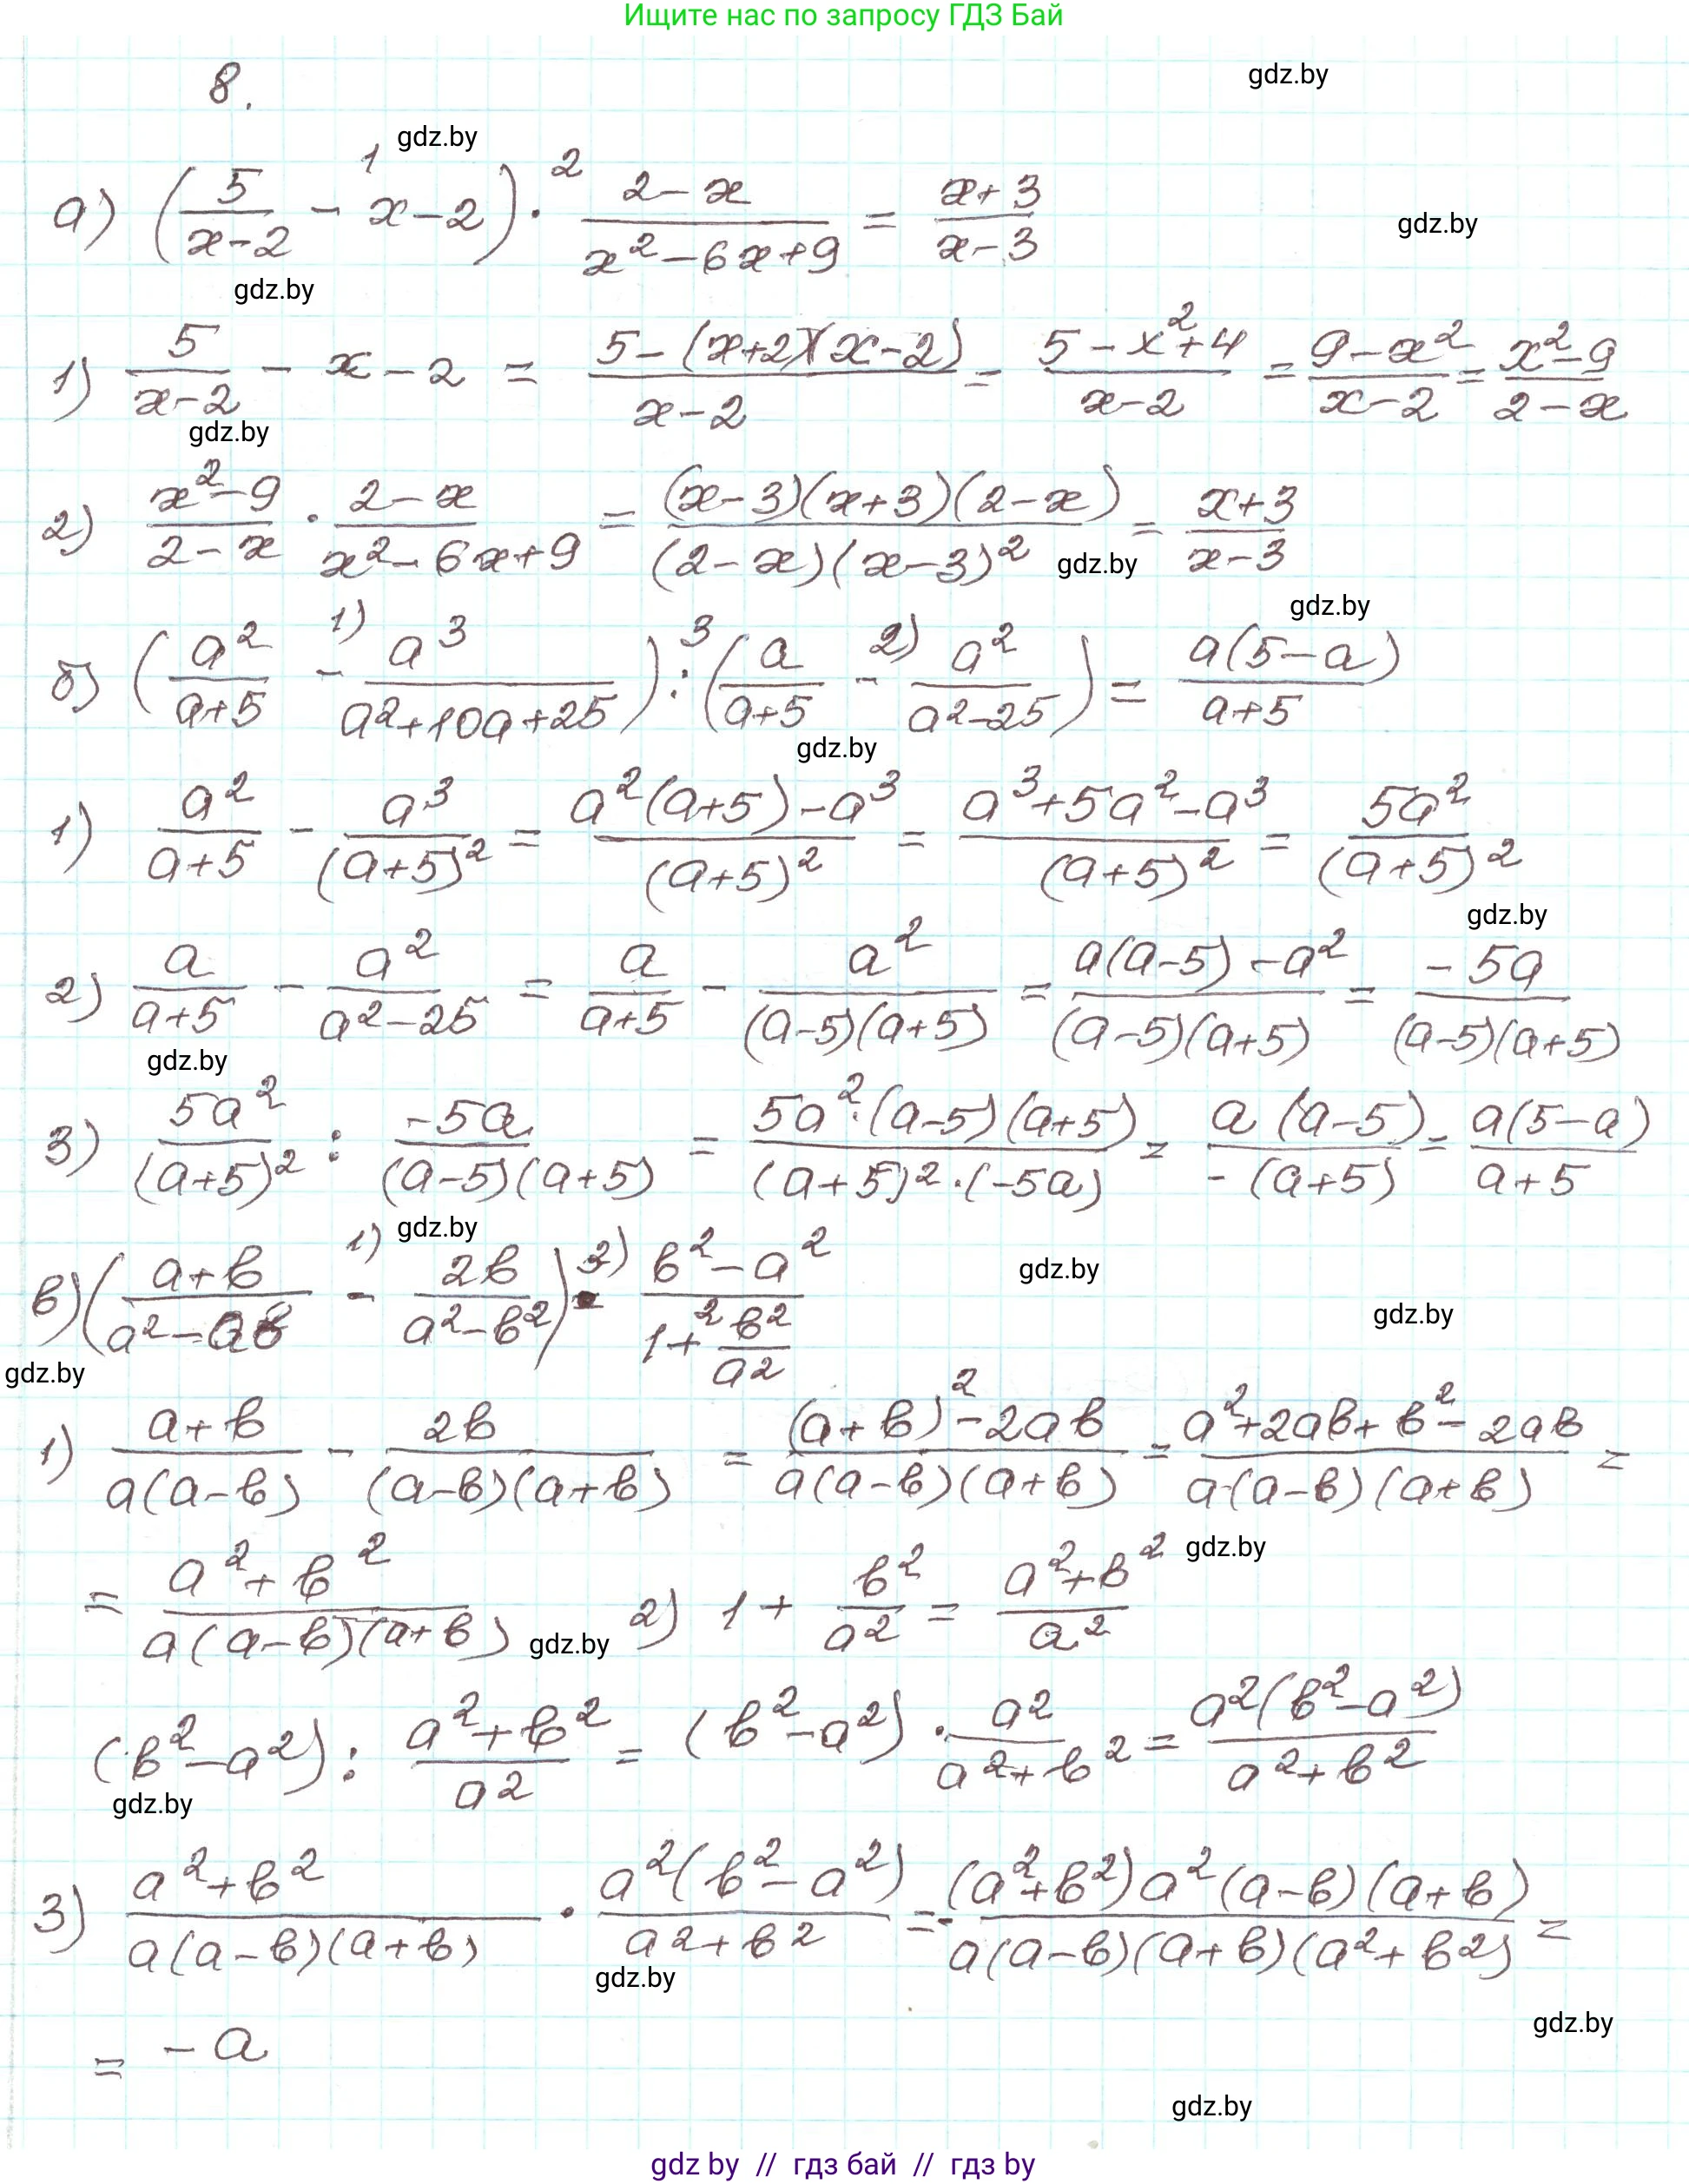 Ищите нас по запросу ГДЗ Бай
8.
gdz.by
gdz.by
а) (5/(x-2) -¹ x-2) ·² (2-x)/(x²-6x+9) = (x+3)/(x-3)
gdz.by
gdz.by
1) 5/(x-2) - x - 2 = (5-(x+2)(x-2))/(x-2) = (5-x²+4)/(x-2) = (9-x²)/(x-2) = (x²-9)/(2-x)
gdz.by
2) (x²-9)/(2-x) · (2-x)/(x²-6x+9) = ((x-3)(x+3)(2-x))/((2-x)(x-3)²) = (x+3)/(x-3)
gdz.by
gdz.by
б) (a²/(a+5) -¹⁾ a³/(a²+10a+25)) :³ (a/(a+5) -²⁾ a²/(a²-25)) = a(5-a)/(a+5)
gdz.by
1) a²/(a+5) - a³/(a+5)² = (a²(a+5)-a³)/(a+5)² = (a³+5a²-a³)/(a+5)² = 5a²/(a+5)²
gdz.by
2) a/(a+5) - a²/(a²-25) = a/(a+5) - a²/((a-5)(a+5)) = (a(a-5)-a²)/((a-5)(a+5)) = -5a/((a-5)(a+5))
gdz.by
3) 5a²/(a+5)² : -5a/((a-5)(a+5)) = (5a²·(a-5)(a+5))/((a+5)²·(-5a)) = a(a-5)/(-(a+5)) = a(5-a)/(a+5)
gdz.by
в) ((a+b)/(a²-ab) -¹⁾ 2b/(a²-b²)) ·³⁾ (b²-a²)/(1+² b²/a²)
gdz.by
gdz.by
gdz.by
1) (a+b)/(a(a-b)) - 2b/((a-b)(a+b)) = ((a+b)²-2ab)/(a(a-b)(a+b)) = (a²+2ab+b²-2ab)/(a·(a-b)(a+b)) =
= (a²+b²)/(a(a-b)(a+b)) 2) 1 + b²/a² = (a²+b²)/a²
gdz.by
gdz.by
(b²-a²) : (a²+b²)/a² = (b²-a²) · a²/(a²+b²) = a²(b²-a²)/(a²+b²)
gdz.by
3) (a²+b²)/(a(a-b)(a+b)) · a²(b²-a²)/(a²+b²) = - ((a²+b²)a²(a-b)(a+b))/(a(a-b)(a+b)(a²+b²)) =
gdz.by
gdz.by
= -a
gdz.by
gdz by // гдз бай // гдз by